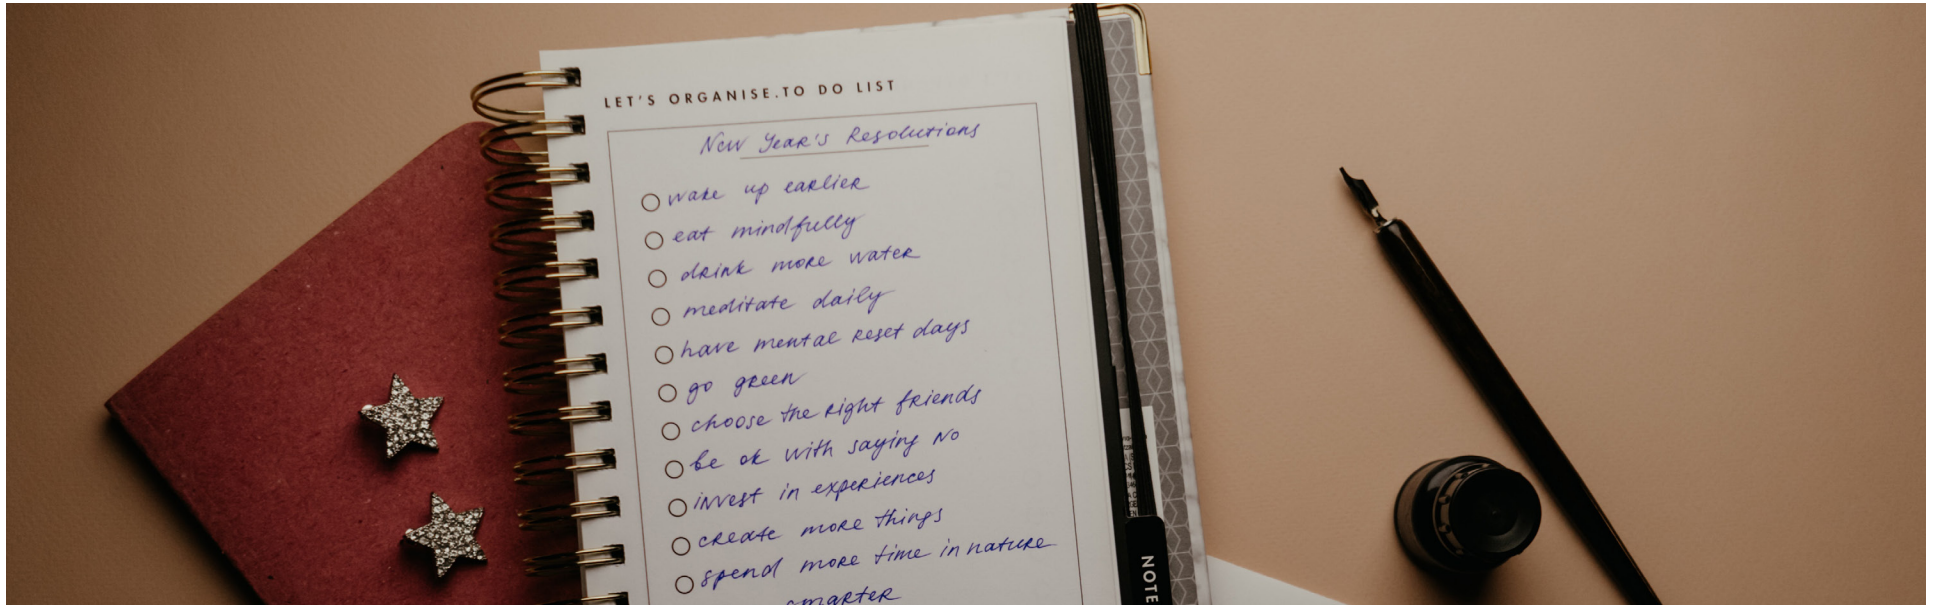 LET'S ORGANISE.TO DO LIST
New Year's Resolutions
wake up earlier
eat mindfully
drink more water
meditate daily
have mental reset days
go green
choose the right friends
be ok with saying no
invest in experiences
create more things
spend more time in nature
smarter
NOTE